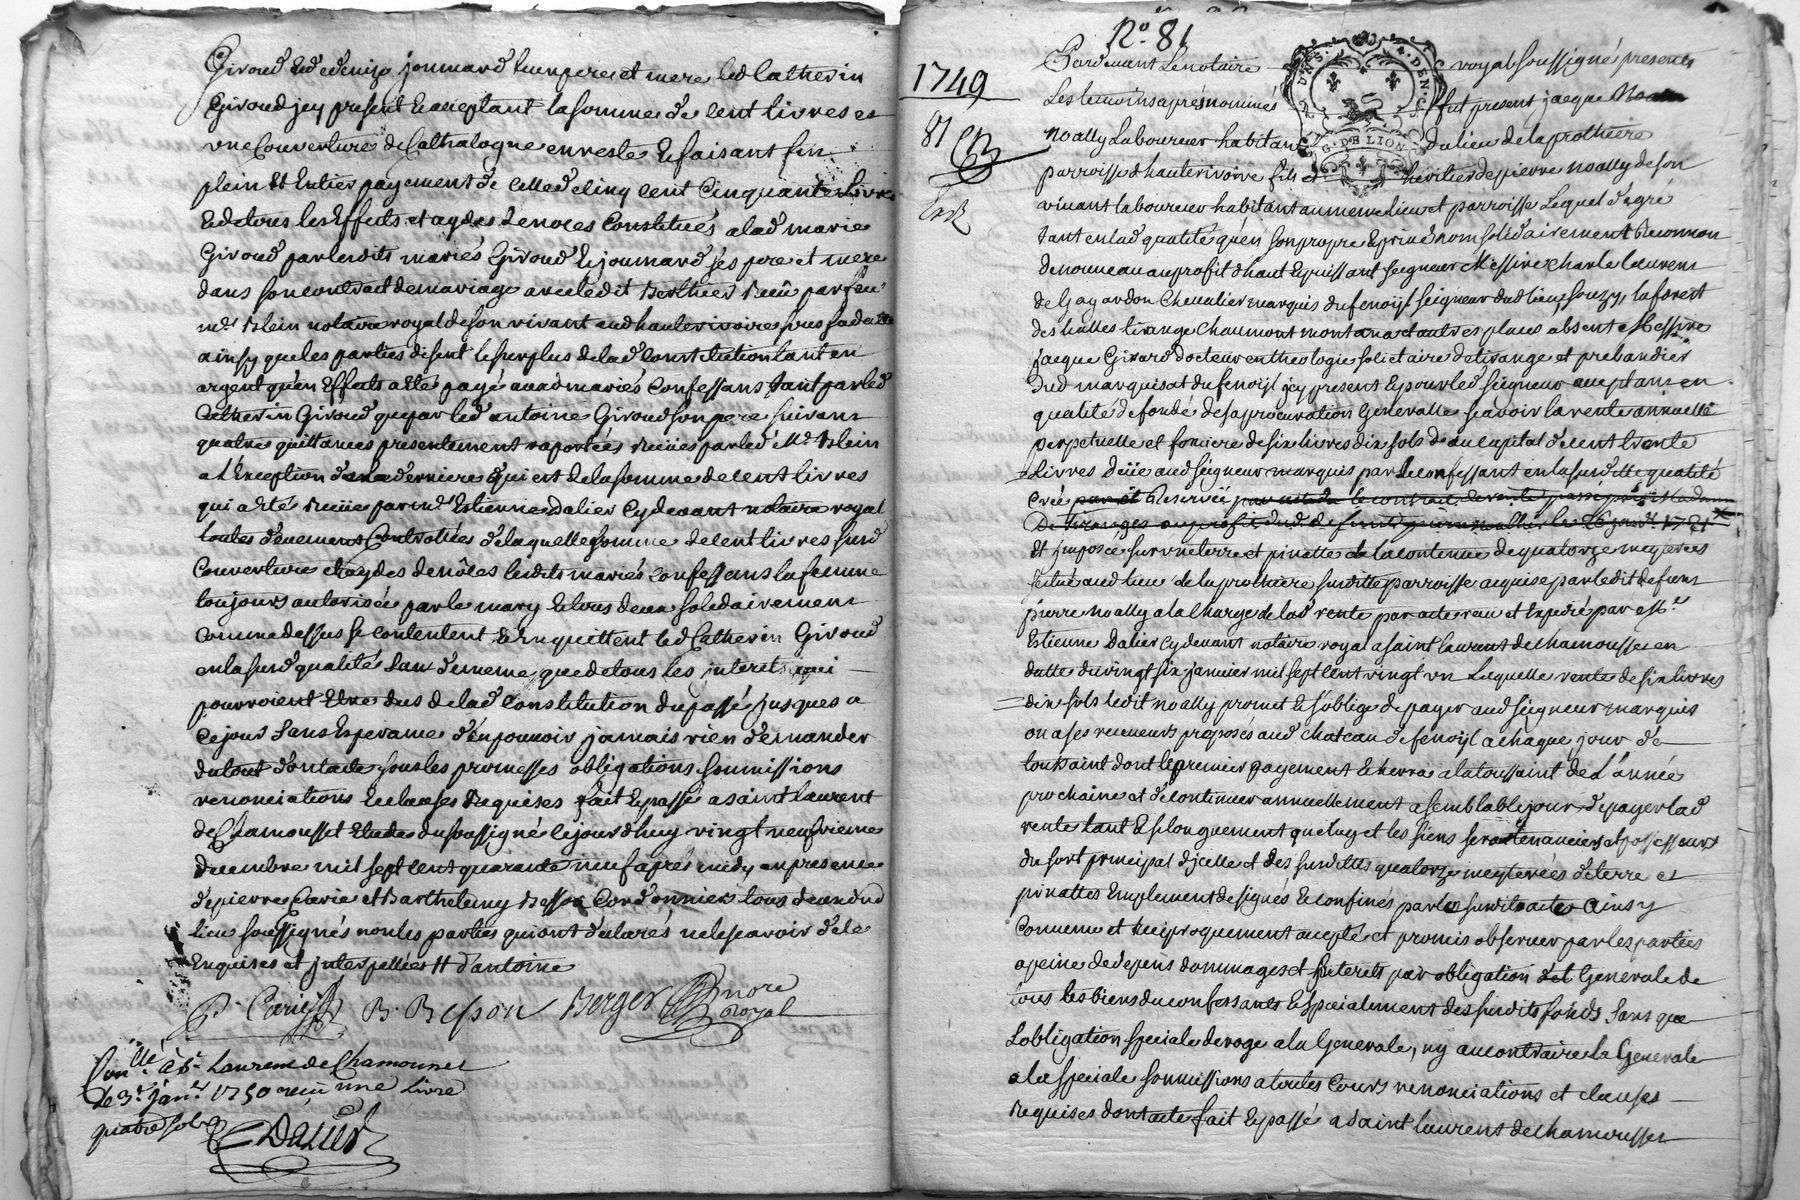 Giroud et de deniza jommard leur pere et mere led Catherin
Giroud jcy present et aceptant la somme de cent livres et
vne Couverture de Cathalogne en reste et faisant fin
plein et Entier payement de celle de cinq cent Cinquante Livres
et de tous les Effets et aydes de noces Constitués a lad marie
Giroud par lesdits mariés Giroud et joumard ses pere et mere
dans son contract de mariage avec ledit Berthier Receu par feu
me Blein notaire royal de son vivant aud hauterivoire sous sa datte
ainsy que les parties disent le surplus de lad Constitution tant en
argent qu'en Effats a eté payé auxd mariés Confessans tant par led
Catherin Giroud que par led antoine Giroud son pere suivant
quatre quittances presentement raportées Reciies par led Me Blein
a l'Exception de la derniere qui est de la somme de cent livres
qui a eté Receüe par me Estienne Dalier Cydevant notaire royal
toutes duement Controllées de laquelle somme de cent livres surd
Couverture et aydes de nôces lesdits mariés confessans la femme
toujours autorisée par le mary et tous deux solidairement
comme dessus se contentent et en quittent led Catherin Giroud
en la surd qualité Sauf de meme que de tous les jnterets qui
pourroient Etre dus de lad Constitution du passé jusques a
Ce jour Sans Esperance d'en pouvoir jamais rien demander
dutout dont acte sous les promesses obligations soumissions
renonciations et clauses requises fait et passé a saint laurent
de Chamousset Etude du soussigné le jourdhuy vingt neufvieme
decembre mil sept cent quarante neuf aprés midy en presence
de pierre Carrie et Barthelemy Besson Cordonniers tous deux dud
lieu soussignés non les parties qui ont declarés ne le scavoir de ce
Enquises et jnterpellées d'antoine
P. Carrie B. Besson Berger nore
Royal
Conlle à St Laurent de Chamousset
le 3e janer 1750 reçu une Livre
quatre sols
Dalier
No. 81
1749
81
G. DE LION
Pardevant Le notaire royal soussigné presents
Les temoins aprés nommés fut present jacque
noally Laboureur habitant du lieu de la prothiere
parroisse d'hauterivoire fils et heritier de pierre noally de son
vivant laboureur habitant au meme lieu et parroisse Lequel d'agré
tant en lad qualité qu'en son propre et privé nom solidairement Reconnoi
de nouveau au profit d'haut et puissant seigneur Messire Charle laurent
de Gayardon Chevalier marquis du fenoÿl seigneur dud lieu, souzy, la forest
des halles tirange Chaumont montana et autres places absent Messire
jacque Girard docteur en theologie solictaire de tirange et prebandier
dud marquisat du fenoÿl jcy present et pour led seigneur aceptant en
qualité de fondé de sa procuration Generalle scavoir la rente annuelle
perpetuelle et fonciere de six livres dix sols de au capital de cent trente
Livres deüe aud seigneur marquis par le confessant en la surditte qualité
creé Reservée
et jmposée sur vne terre et pinatte de la contenue de quatorze meyterées
scitué aud lieu de la prothiere surditte parroisse acquise par ledit defunt
pierre noally a la Charge de lad rente par acte receu et Expedié par Me
Estienne Dalier Cydevant notaire royal a saint laurent de chamousset en
datte du vingt six janvier mil sept cent vingt vn Laquelle rente de six livres
dix sols ledit noally promet et s'oblige de payer aud seigneur marquis
ou a ses receveurs proposés aud chateau de fenoyl a chaque jour de
toussaint dont le premier payement Echerra a la toussaint de l'année
prochaine et de continuer annuellement a semblable jour de payer lad
rente tant Et si longuement que luy et les siens seront tenanciers et possesseurs
du sort principal d'jcelle et des surdittes quatorze meyterées de terre et
pinattes Emplement designés et confinés par le surdit acte Ainsy
Convenu et reciproquement accepté et promis observer par les parties
a peine de depens dommages et jnterets par obligation Generale de
tous les biens du confessant et Specialement des surdits fonds Sans que
L'obligation speciale deroge a la Generale, ny au contraire la Generale
a la speciale soumissions a toutes Cours renonciations et clauses
Requises dont acte fait et passé a Saint laurent de chamousset